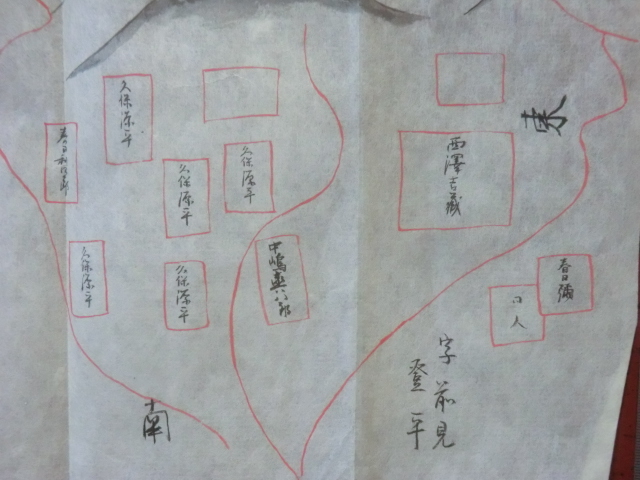 東
西澤吉蔵
春日彌
口人
字前見
登平
久保源平
久保源平
久保源平
中嶋與八郎
久保源平
久保源平
南